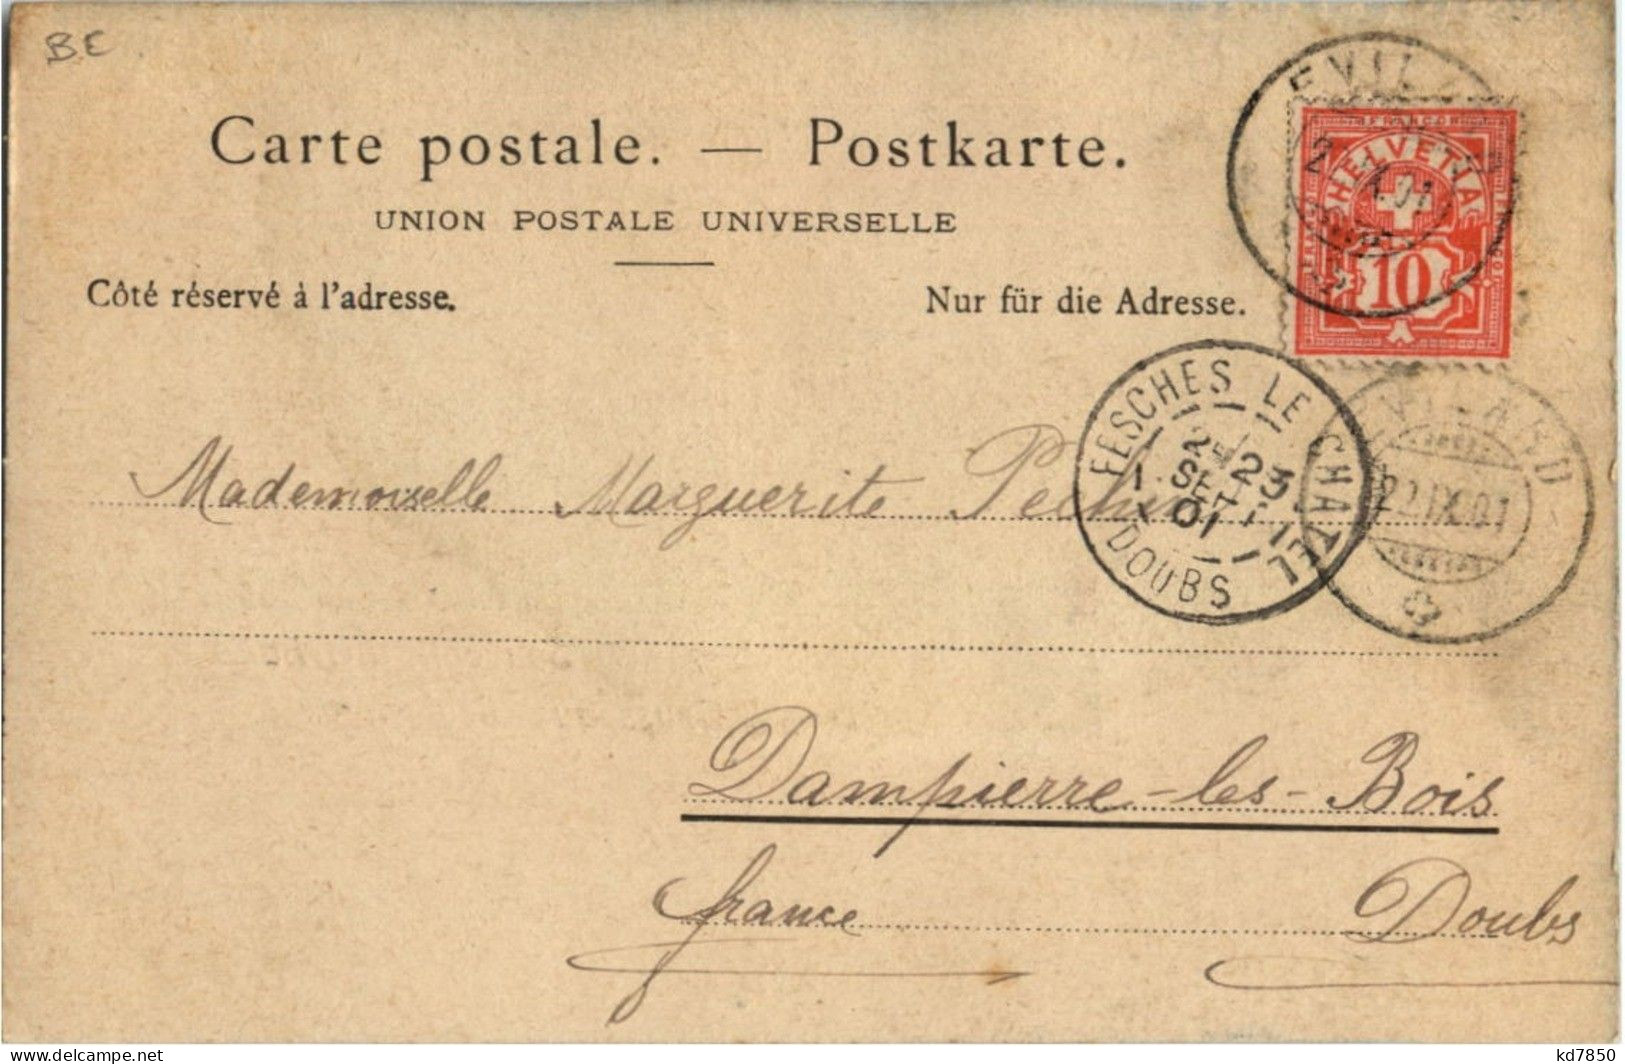 BE
Carte postale. — Postkarte.
UNION POSTALE UNIVERSELLE
Côté réservé à l'adresse.
Nur für die Adresse.
FRANCO
HELVETIA
10
FESCHES LE CHATEL
23
SEPT
01
DOUBS
EVILARD
22.IX.01
Mademoiselle Marguerite
Dampierre-les-Bois
france Doubs
kd7850